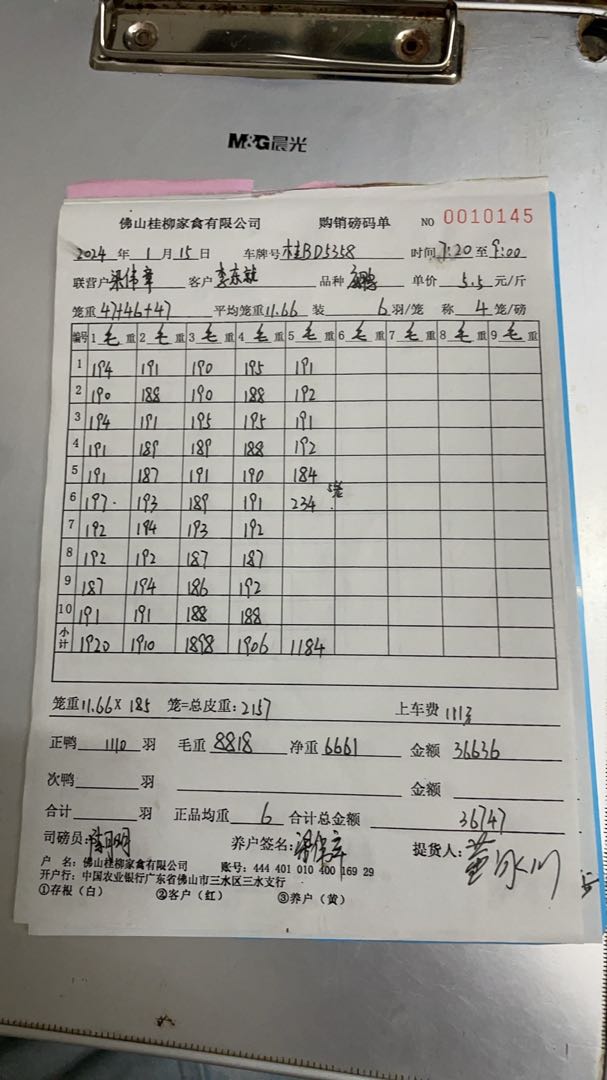 M&G晨光
佛山桂柳家禽有限公司 购销磅码单 NO 0010145
2024 年 1 月 15 日 车牌号 桂BD5358 时间 7:20 至 9:00
联营户 梁伟章 客户 李东 品种 单价 5.5 元/斤
笼重 47+46+47 平均笼重 11.66 装 6 羽/笼 称 4 笼/磅
编号 1 毛 重 2 毛 重 3 毛 重 4 毛 重 5 毛 重 6 毛 重 7 毛 重 8 毛 重 9 毛 重
1 194 191 190 195 191
2 190 188 190 188 192
3 194 191 195 195 191
4 191 189 189 188 192
5 191 187 191 190 184
6 197. 193 189 191 234 5笼
7 192 194 193 192
8 192 192 187 187
9 187 194 186 192
10 191 191 188 188
小计 1920 1910 1898 1906 1184
笼重 11.66 × 185 笼=总皮重: 2157 上车费 111元
正鸭 1110 羽 毛重 8818 净重 6661 金额 36636
次鸭 羽 金额
合计 羽 正品均重 6 合计总金额 36747
司磅员: 养户签名: 梁伟章 提货人: 黄冰川
户 名: 佛山桂柳家禽有限公司 账号: 444 401 010 400 169 29
开户行: 中国农业银行广东省佛山市三水区三水支行
①存根(白) ②客户(红) ③养户(黄)